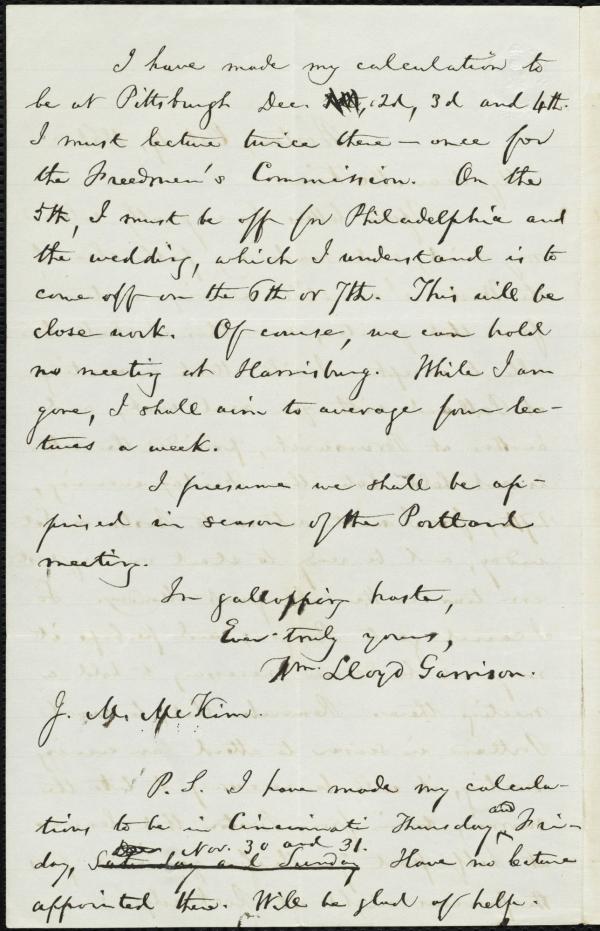 I have made my calculation to
be at Pittsburgh Dec. 2d, 3d and 4th.
I must lecture twice there — once for
the Freedmen's Commission. On the
5th, I must be off for Philadelphia and
the wedding, which I understand is to
come off on the 6th or 7th. This will be
close work. Of course, we can hold
no meeting at Harrisburg. While I am
gone, I shall aim to average four lec-
tures a week.
I presume we shall be ap-
prised in season of the Portland
meeting.
In gallopping haste,
Ever truly yours,
Wm. Lloyd Garrison.
J. M. McKim.
P.S. I have made my calcula-
tions to be in Cincinnati Thursday and Fri-
Nov. 30 and 31.
day, Saturday and Sunday Have no lecture
appointed there. Will be glad of help.